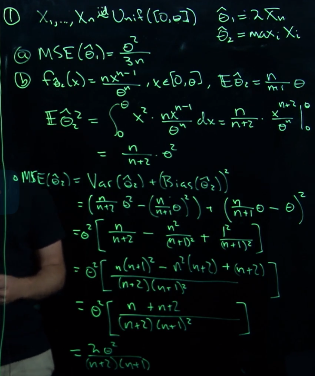 ① X₁,...,Xₙ iid Unif([0,θ]) θ̂₁ = 2X̄ₙ
θ̂₂ = maxᵢ Xᵢ
ⓐ MSE(θ̂₁) = θ²/3n
ⓑ f_θ̂₂(x) = nxⁿ⁻¹/θⁿ, x∈[0,θ], 𝔼θ̂₂ = n/(n+1) θ
𝔼θ̂₂² = ∫₀^θ x² · nxⁿ⁻¹/θⁿ dx = n/(n+2) · xⁿ⁺²/θⁿ |₀^θ
= n/(n+2) · θ²
• MSE(θ̂₂) = Var(θ̂₂) + (Bias(θ̂₂))²
= (n/(n+2) θ² - (n/(n+1) θ)²) + (n/(n+1) θ - θ)²
= θ² [n/(n+2) - n²/(n+1)² + 1²/(n+1)²]
= θ² [n(n+1)² - n²(n+2) + (n+2) / (n+2)(n+1)²]
= θ² [n + n+2 / (n+2)(n+1)²]
= 2θ²/(n+2)(n+1)